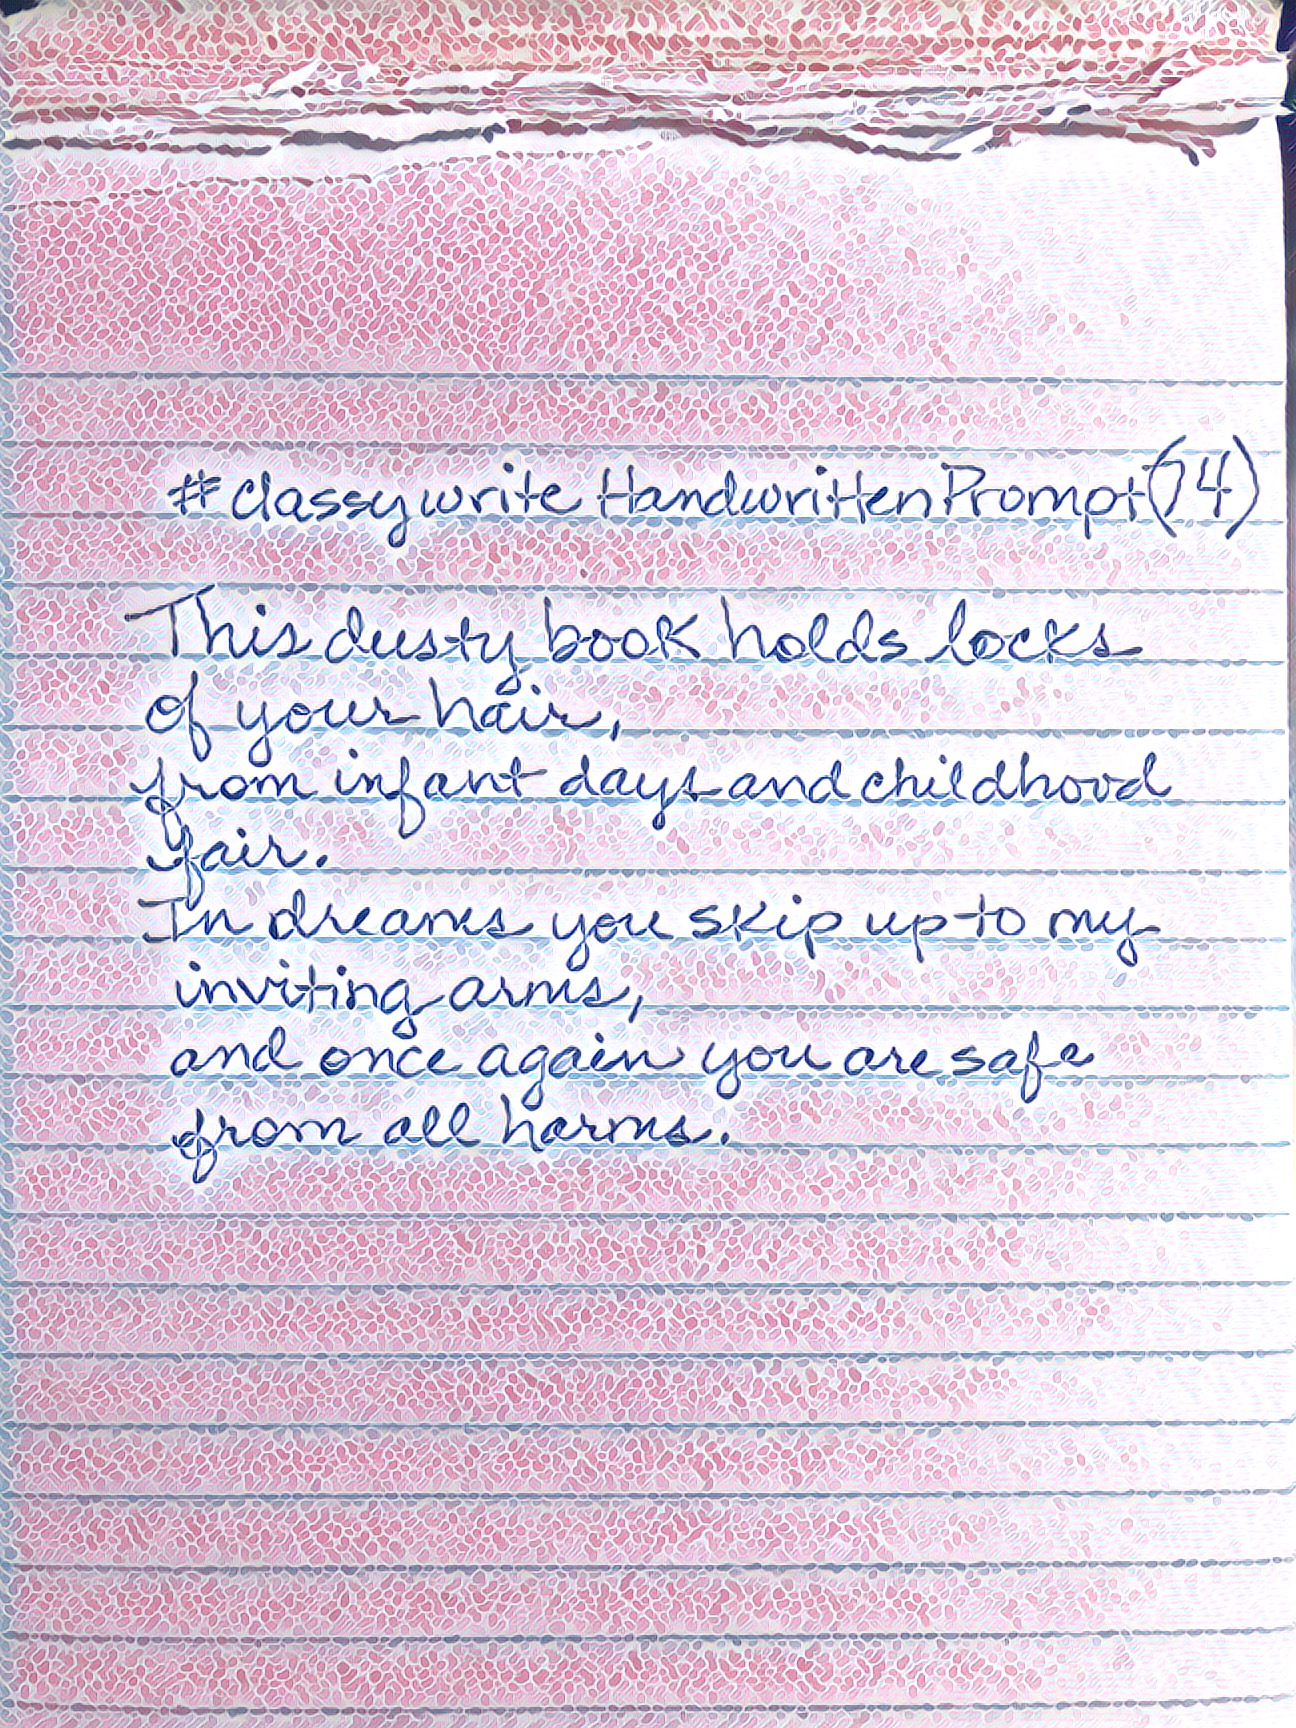 #classywrite Handwritten Prompt (74)
This dusty book holds locks
of your hair,
from infant days and childhood
fair.
In dreams you skip up to my
inviting arms,
and once again you are safe
from all harms.